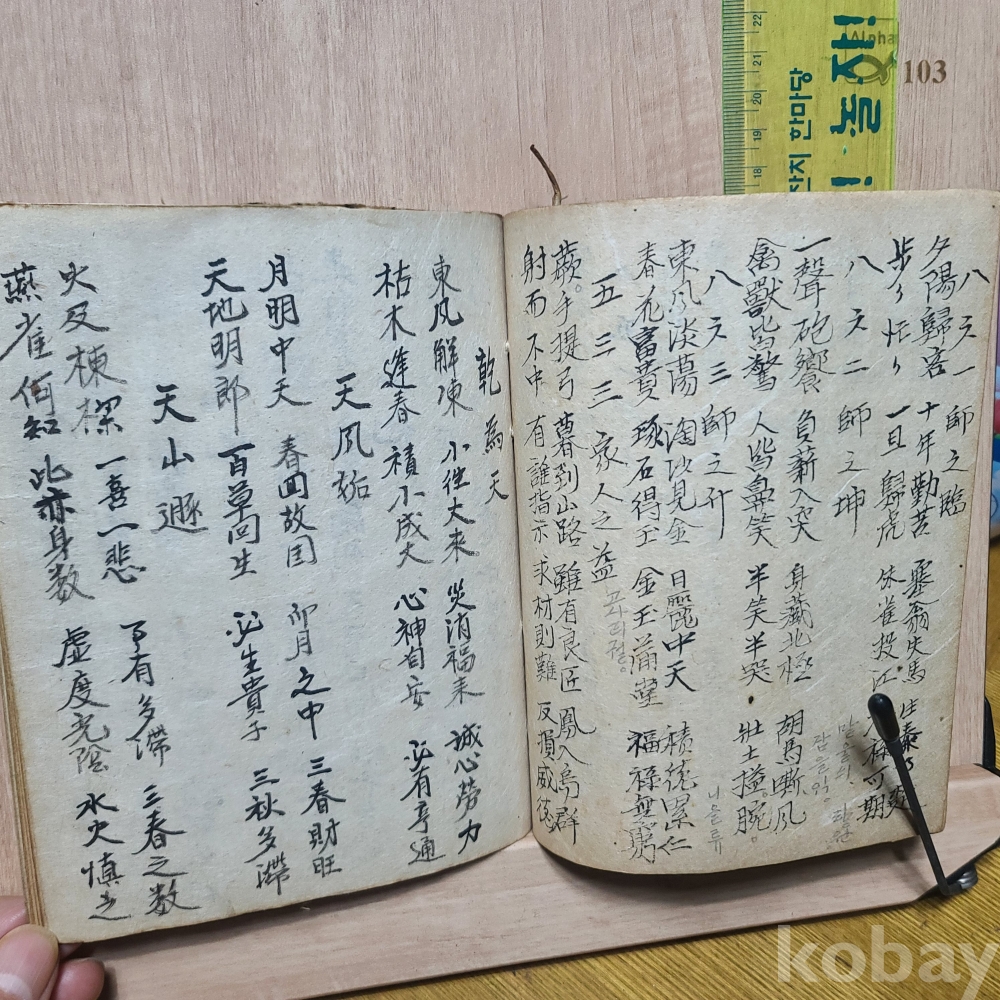 八六一 師之臨
夕陽歸客 十年勤苦 塞翁失馬
步々忙々 一旦歸虎 朱雀投江 可期
八六二 師之坤
一聲砲響 負薪入突 身藏北極 胡馬嘶風
禽獸皆驚 人皆鼻笑 半笑半哭 壯士搤腕
八六三 師之升
東風淡蕩 淘沙見金 日麗中天 積德累仁
春花富貴 琢石得玉 金玉滿堂 福祿無窮
五三三 家人之益
蕨手提弓 暮到山路 雖有良匠 鳳入烏群
射而不中 有誰指示 求材則難 反損威德
乾為天
東風解凍 小往大來 災消福来 誠心勞力
枯木逢春 積小成大 心神自安 必有亨通
天風姤
月明中天 春回故国 卯月之中 三春財旺
天地明郎 百草回生 必生貴子 三秋多滯
天山遯
火及棟樑 一喜一悲 了有多滯 三春之数
燕雀何知 此亦身数 虛度光陰 水火慎之
놀자!
한마당
Alpha
103
22
21
20
19
18
kobay